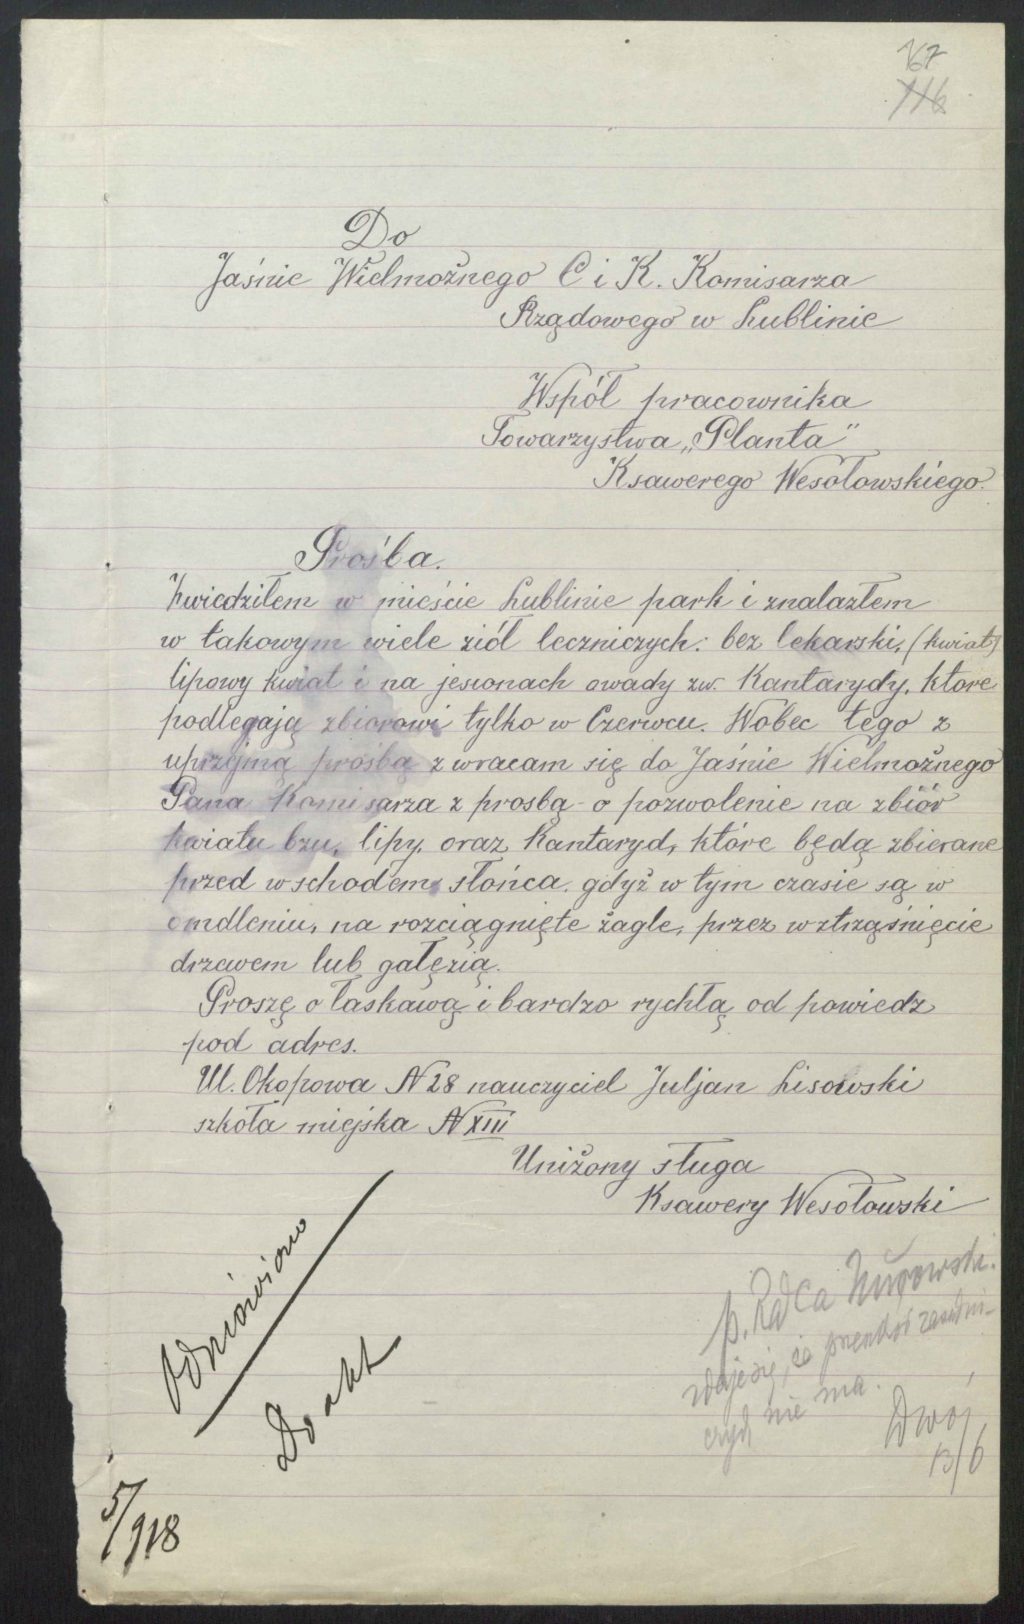 167
116
Do
Jaśnie Wielmożnego C i K. Komisarza
Rządowego w Lublinie
Wspól pracownika
Towarzystwa „Planta"
Ksawerego Wesołowskiego.
Prośba.
Zwiedziłem w mieście Lublinie park i znalazłem
w takowym wiele ziół leczniczych: bez lekarski, (kwiat)
lipowy kwiat i na jesionach owady zw. Kantarydy, które
podlegają zbiorowi tylko w Czerwcu. Wobec tego z
uprzejmą prośbą zwracam się do Jaśnie Wielmożnego
Pana Komisarza z prosbą o pozwolenie na zbiór
kwiatu bzu, lipy, oraz Kantaryd, które będą zbierane
przed wschodem słońca, gdyż w tym czasie są w
omdleniu, na rozciągnięte żagle, przez wztrząśnięcie
drzewem lub gałęzią.
Proszę o łaskawą i bardzo rychłą od powiedz
pod adres.
Ul. Okopowa N 28 nauczyciel Juljan Lisowski
szkoła miejska N XIII
Uniżony sługa
Ksawery Wesołowski
p. Radca
zdaje się, że przeszkód zasadni-
czych nie ma.
13/6
Odmówiono
Do akt
5/918